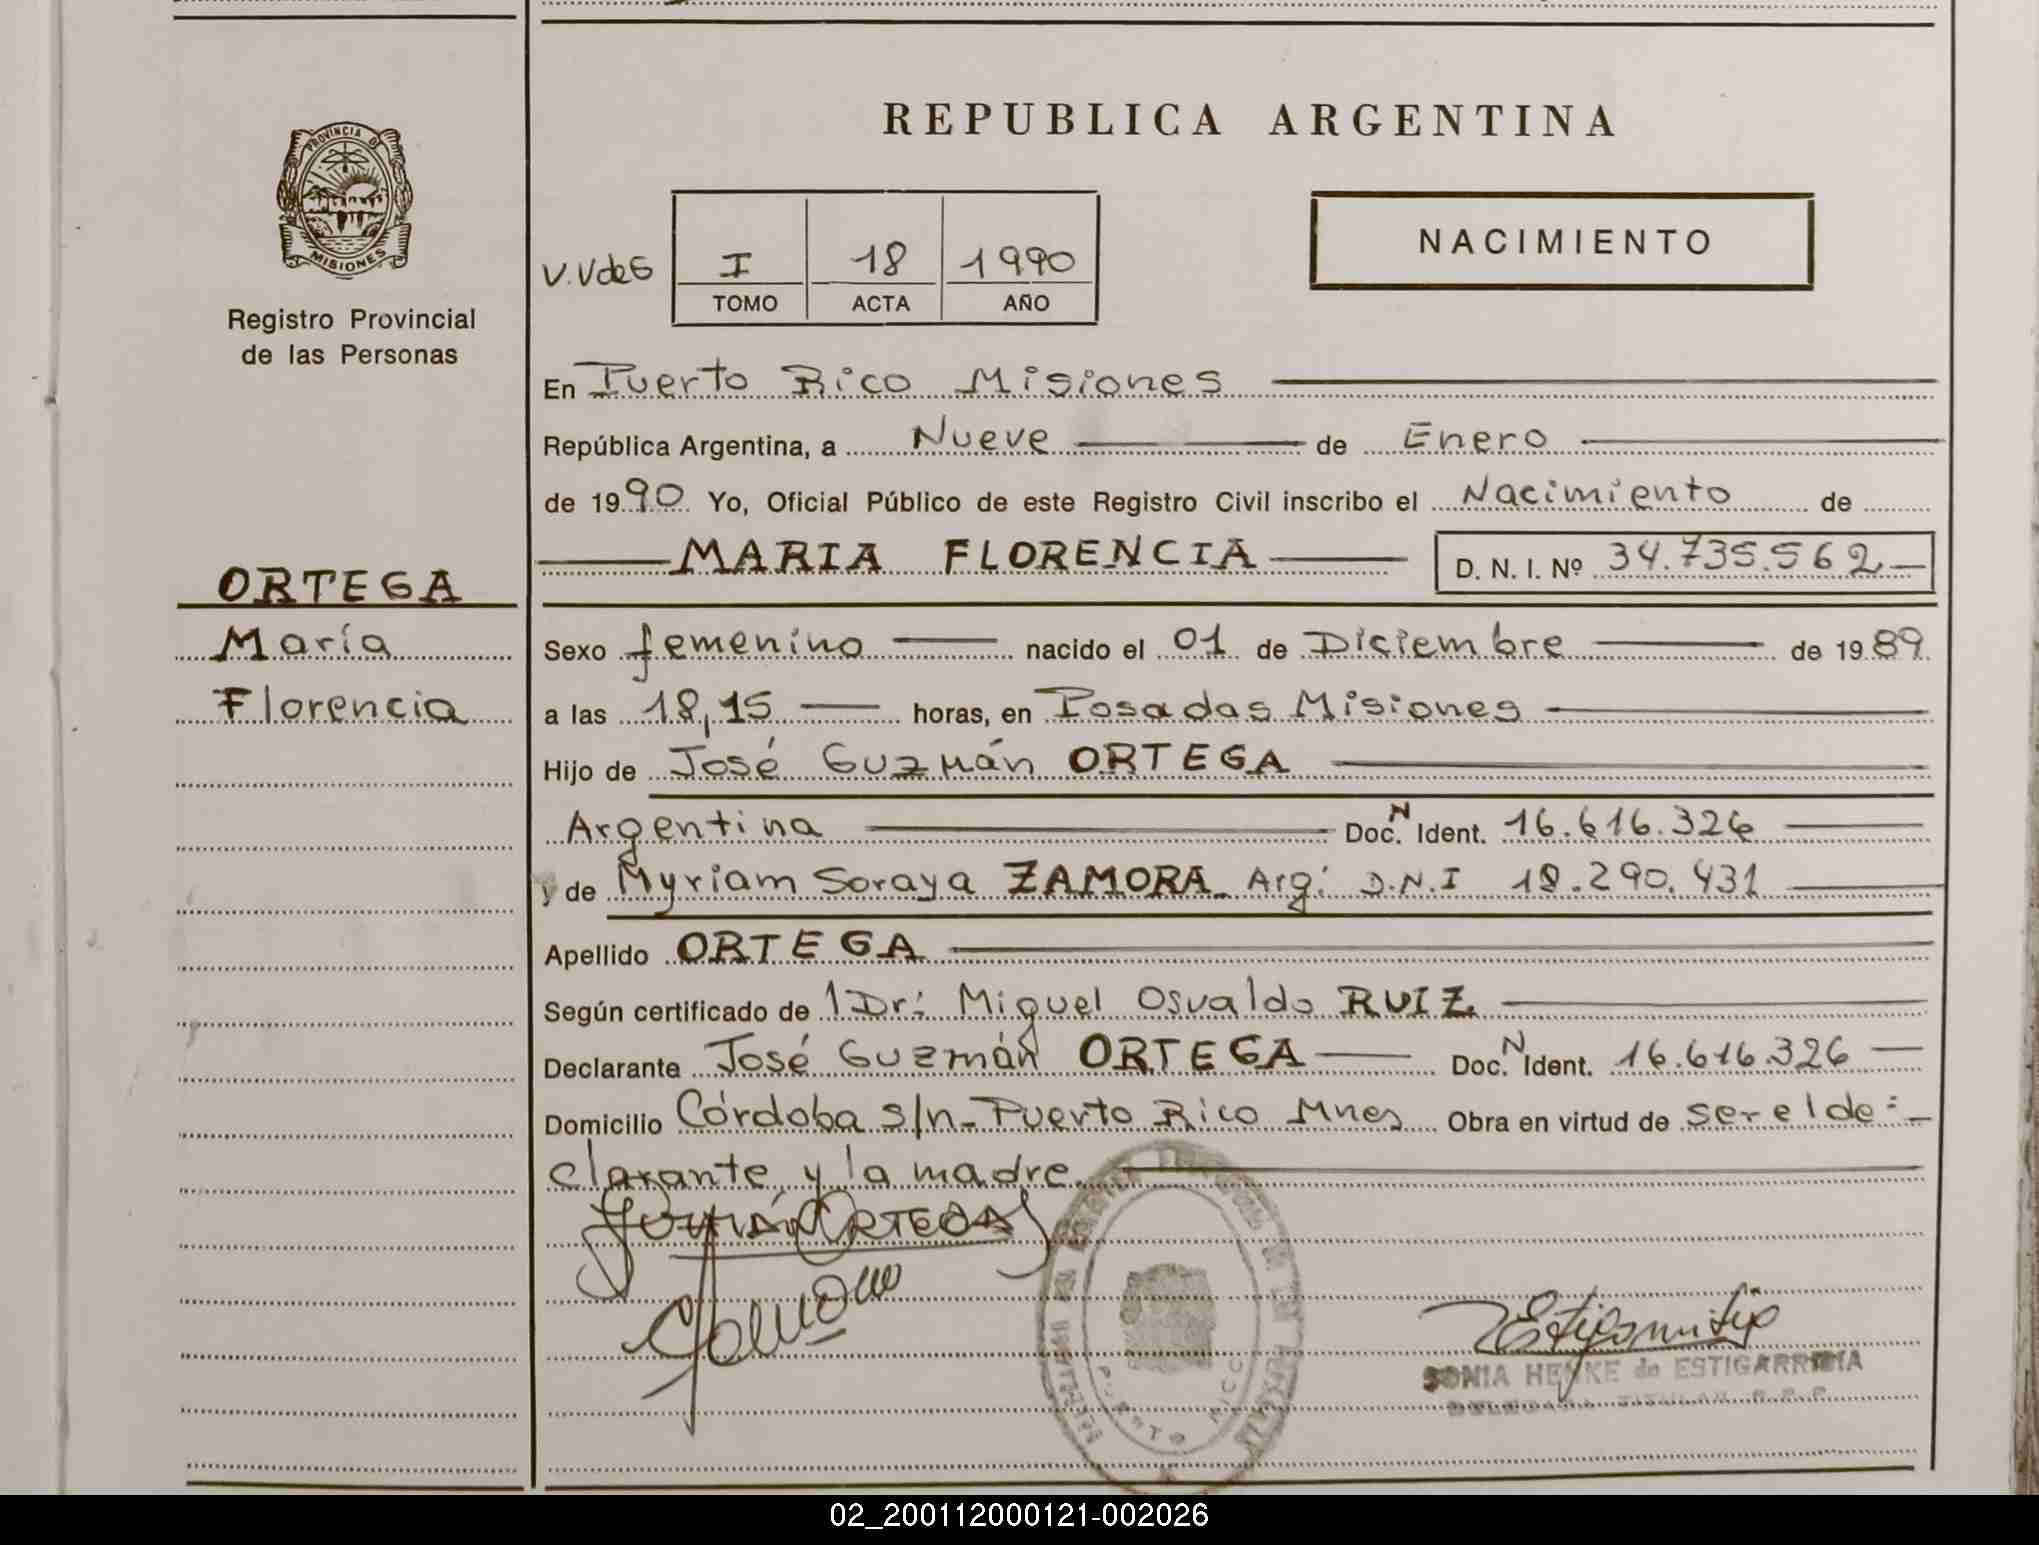 PROVINCIA DE
MISIONES
Registro Provincial
de las Personas
ORTEGA
María
Florencia
REPUBLICA ARGENTINA
V.VdeG
I 18 1990
TOMO ACTA AÑO
NACIMIENTO
En Puerto Rico Misiones
República Argentina, a Nueve de Enero
de 1990 Yo, Oficial Público de este Registro Civil inscribo el Nacimiento de
MARIA FLORENCIA D. N. I. Nº 34.735.562
Sexo femenino nacido el 01 de Diciembre de 1989
a las 18,15 horas, en Posadas Misiones
Hijo de José Guzmán ORTEGA
Argentina Doc. N Ident. 16.616.326
y de Myriam Soraya ZAMORA Arg. D.N.I 18.290.431
Apellido ORTEGA
Según certificado de 1 Dr: Miguel Osvaldo RUIZ
Declarante José Guzmán ORTEGA Doc. N Ident. 16.616.326
Domicilio Córdoba s/n- Puerto Rico Mnes Obra en virtud de ser el de=
clarante y la madre.
ORTEGA
PUERTO RICO
SONIA HENKE de ESTIGARRIBIA
02_200112000121-002026